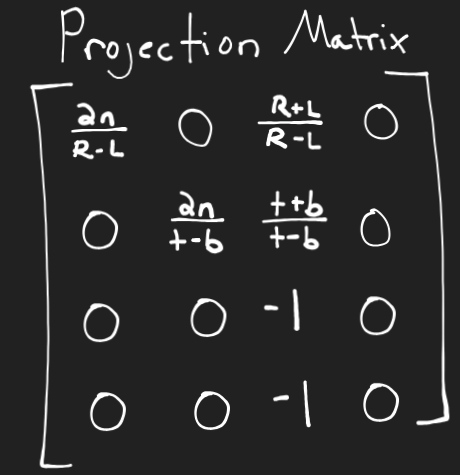 Projection Matrix
2n/R-L 0 R+L/R-L 0
0 2n/t-b t+b/t-b 0
0 0 -1 0
0 0 -1 0